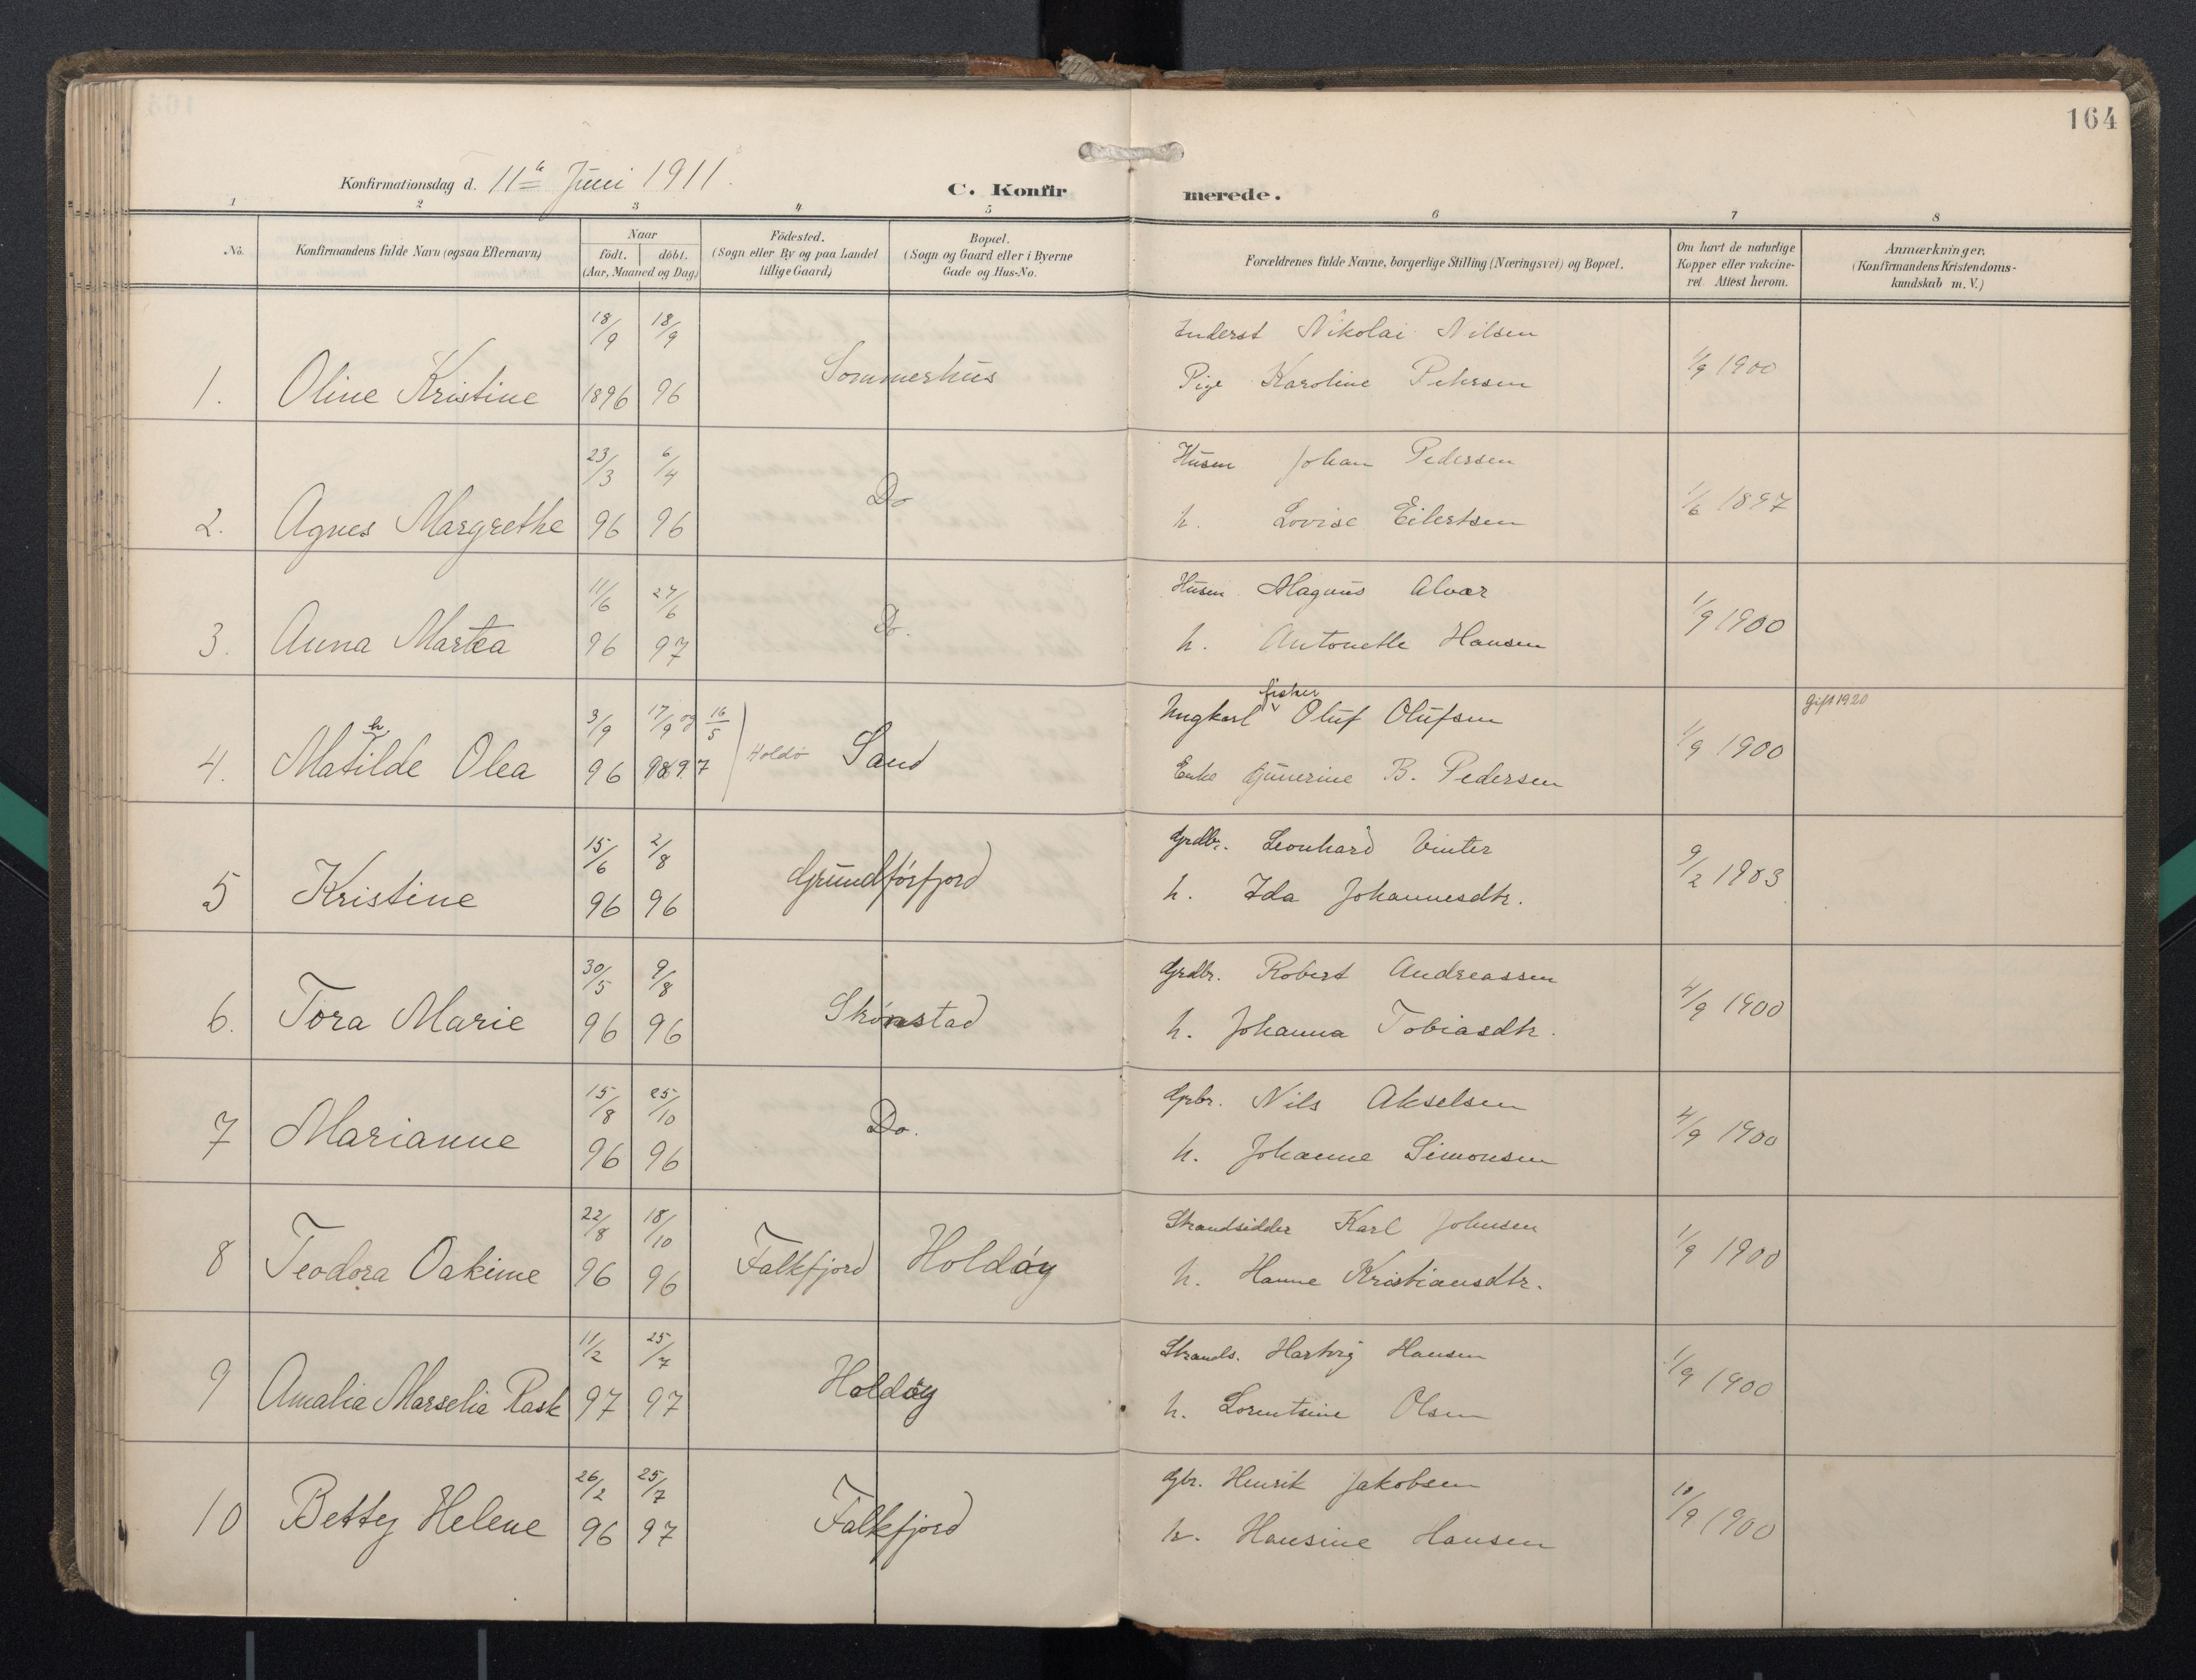 164
Konfirmationsdag d. 11te Juni 1911.
C. Konfirmerede.
1 2 3 4 5 6 7 8
No.
Konfirmandens fulde Navn (ogsaa Efternavn)
Naar
födt. döbt.
(Aar, Maaned og Dag)
Födested.
(Sogn eller By og paa Landet
tillige Gaard)
Bopæl.
(Sogn og Gaard eller i Byerne
Gade og Hus-No.
Forældrenes fulde Navne, borgerlige Stilling (Næringsvei) og Bopæl.
Om havt de naturlige
Kopper eller vakcine-
ret. Attest herom.
Anmærkninger.
(Konfirmandens Kristendoms-
kundskab m. V.)
18/9 18/9 Inderst Nikolai Nilsen
1. Oline Kristine 1896 96 Sommerhus Pige Karoline Pehrsen 1/9 1900
23/3 6/4 Husm Johan Pedersen
2. Agnes Margrethe 96 96 Do h. Lovise Eilertsen 1/6 1897
11/6 27/6 Husm. Magnus Alvær
3. Anna Martea 96 97 Do. h. Antonette Hansen 1/9 1900
3/9 17/9 og 16/5 Ungkarl fisker Oluf Olufsen Gift 1920
4. Mathilde Olea 96 97 Holdö Sand Enke Gunerine B. Pedersen 1/9 1900
15/6 2/8 Grdbr. Leonhard Vinter
5 Kristine 96 96 Grundførfjord h. Ida Johannesdtr. 9/2 1903
30/5 9/8 Grdbr. Robert Andreassen
6. Tora Marie 96 96 Skönstad h. Johanna Tobiasdtr. 4/9 1900
15/8 25/10 Grbr. Nils Akselsen
7 Marianne 96 96 Do. h. Johanne Simonsen 4/9 1900
22/8 18/10 Strandsidder Karl Johnsen
8 Teodora Oakime 96 96 Falkfjord Holdöy h. Hanne Kristiansdtr. 1/9 1900
11/2 25/7 Strands. Hartvig Hansen
9 Amalia Marselia Rask 97 97 Holdöy h. Lorentsine Olsen 1/9 1900
26/2 25/7 Gbr. Henrik Jakobsen
10 Betty Helene 96 97 Falkfjord h. Hansine Hansen 10/9 1900